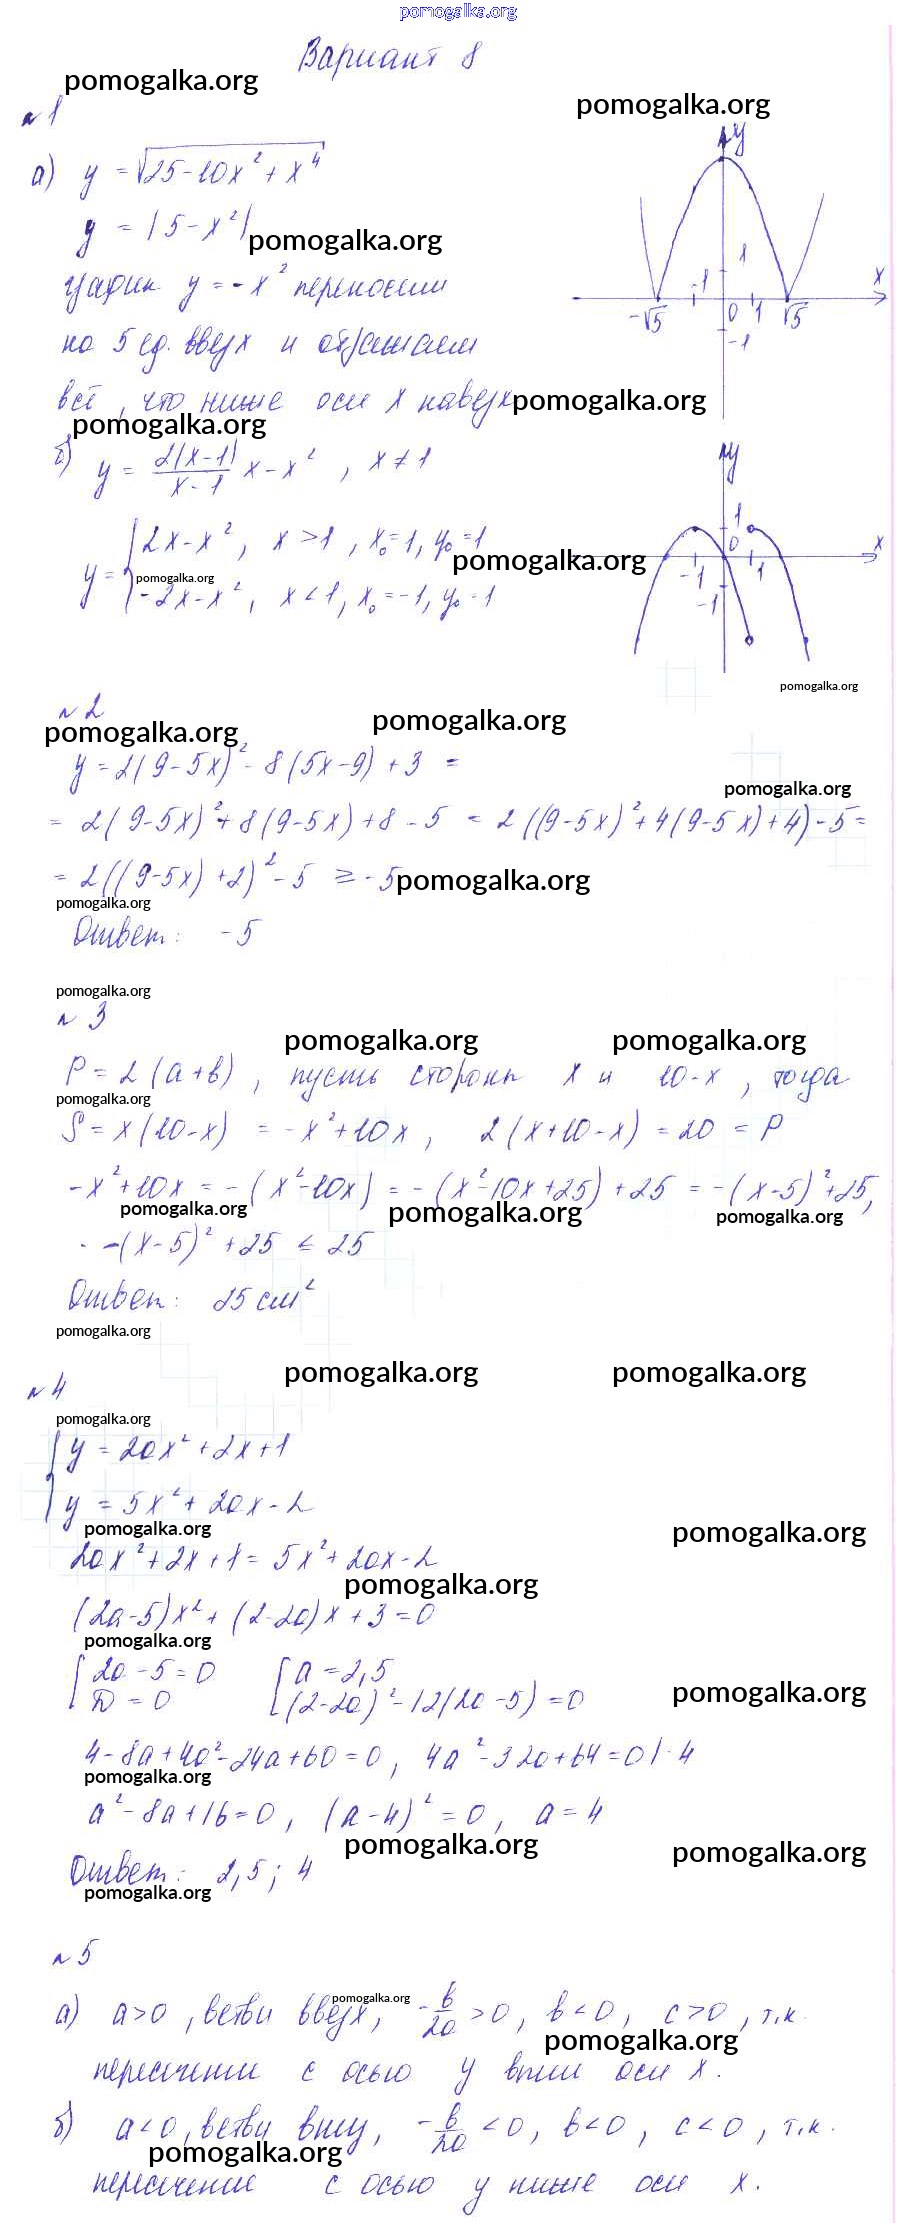 pomogalka.org
Вариант 8
pomogalka.org
pomogalka.org
№1
а) y = √(25-10x²+x⁴)
y = |5-x²|
pomogalka.org
график y = -x² переносим
на 5 ед. вверх и отражаем
всё, что ниже оси x наверх
pomogalka.org
pomogalka.org
y
x
1
-1
-√5
0
1
√5
-1
б) y = 2|x-1|/(x-1) x - x², x ≠ 1
y = { 2x-x², x > 1, x₀=1, y₀=1
pomogalka.org
pomogalka.org
-2x-x², x < 1, x₀=-1, y₀=1
y
x
1
0
-1
1
-1
pomogalka.org
№2
pomogalka.org
pomogalka.org
y = 2(9-5x)² - 8(5x-9) + 3 =
pomogalka.org
= 2(9-5x)² + 8(9-5x) + 8 - 5 = 2((9-5x)² + 4(9-5x) + 4) - 5 =
= 2((9-5x)+2)² - 5 ≥ -5
pomogalka.org
pomogalka.org
Ответ: -5
pomogalka.org
№3
pomogalka.org
pomogalka.org
P = 2(a+b), пусть стороны x и 10-x, тогда
pomogalka.org
S = x(10-x) = -x²+10x, 2(x+10-x) = 20 = P
-x²+10x = -(x²-10x) = -(x²-10x+25)+25 = -(x-5)²+25,
pomogalka.org
pomogalka.org
pomogalka.org
-(x-5)²+25 ≤ 25
Ответ: 25 см²
pomogalka.org
pomogalka.org
pomogalka.org
№4
pomogalka.org
{ y = 2ax²+2x+1
y = 5x²+2ax-2
pomogalka.org
pomogalka.org
2ax²+2x+1 = 5x²+2ax-2
pomogalka.org
(2a-5)x²+(2-2a)x+3=0
pomogalka.org
[ 2a-5=0 [ a=2,5
D=0 (2-2a)²-12(2a-5)=0
pomogalka.org
4-8a+4a²-24a+60=0, 4a²-32a+64=0 |:4
pomogalka.org
a²-8a+16=0, (a-4)²=0, a=4
pomogalka.org
pomogalka.org
Ответ: 2,5; 4
pomogalka.org
№5
pomogalka.org
а) a>0, ветви вверх, -b/2a >0, b<0, c>0, т.к.
pomogalka.org
пересечении с осью y выше оси x.
б) a<0, ветви вниз, -b/2a <0, b<0, c<0, т.к.
pomogalka.org
пересечение с осью y ниже оси x.